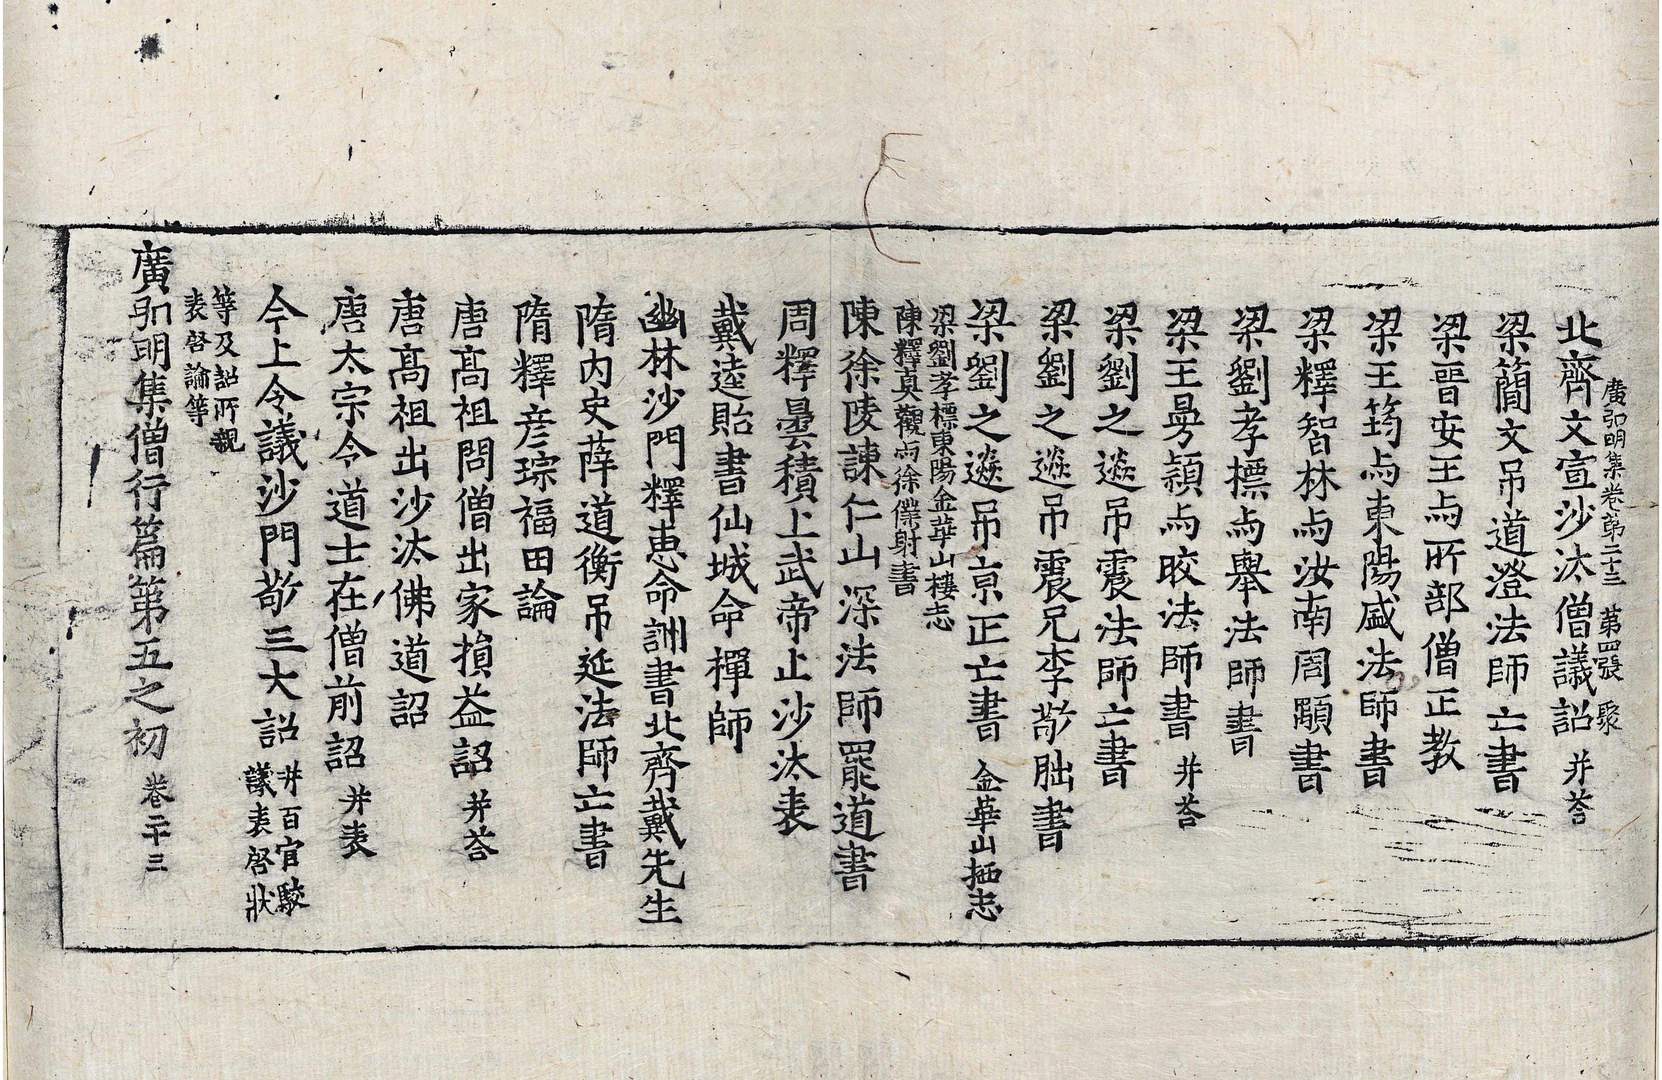 廣弘明集卷第二十三　第四張　聚
北齊文宣沙汰僧議詔　并荅
梁簡文吊道澄法師亡書
梁晉安王与所部僧正教
梁王筠与東陽盛法師書
梁釋智林与汝南周顒書
梁劉孝標与舉法師書
梁王曼穎与皎法師書　并荅
梁劉之遴吊震法師亡書
梁劉之遴吊震兄李敬朏書
梁劉之遴吊京正亡書　金華山栖志
梁劉孝標東陽金華山棲志
陳釋真觀与徐僕射書
陳徐陵諫仁山深法師罷道書
周釋曇積上武帝止沙汰表
戴逵貽書仙城命禪師
幽林沙門釋惠命詶書北齊戴先生
隋內史薛道衡吊延法師亡書
隋釋彦琮福田論
唐髙祖問僧出家損益詔　并荅
唐髙祖出沙汰佛道詔
唐太宗令道士在僧前詔　并表
今上令議沙門敬三大詔　并百官駮
議表啓狀
等及詔所親
表啓論等
廣弘明集僧行篇第五之初　卷二十三